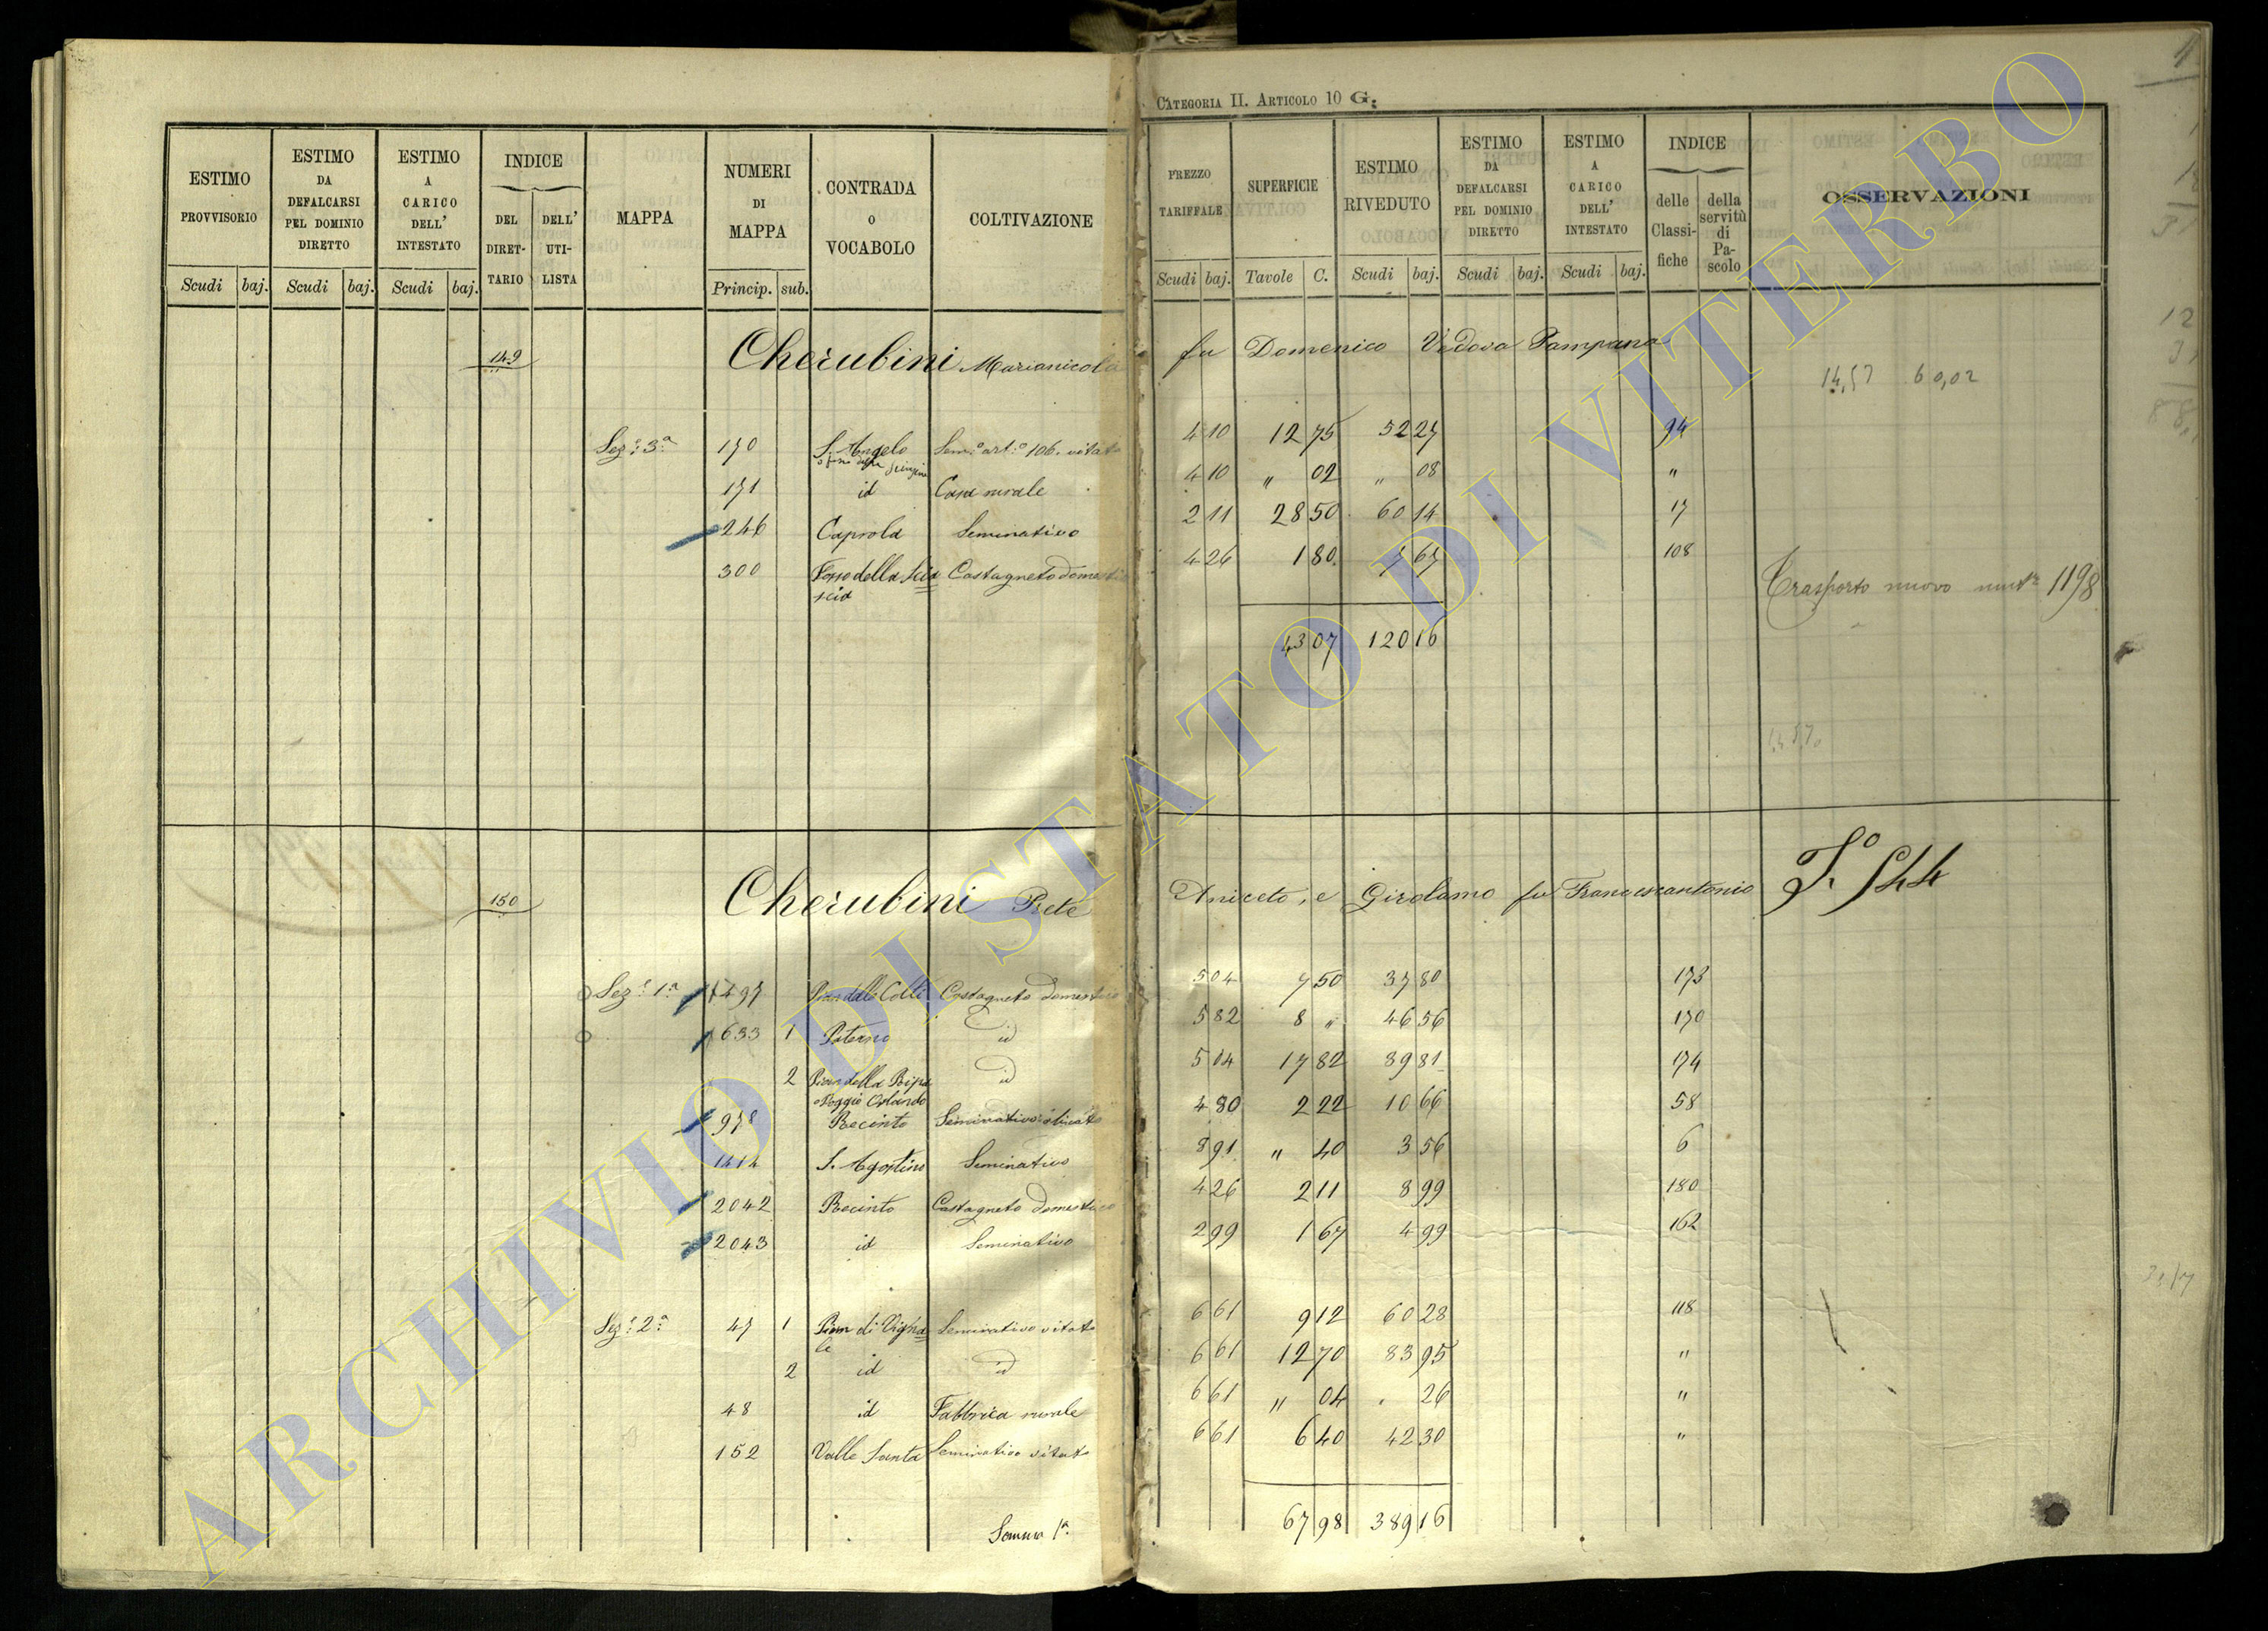 CATEGORIA II. ARTICOLO 10 G.
ESTIMO PROVVISORIO Scudi baj.
ESTIMO DA DEFALCARSI PEL DOMINIO DIRETTO Scudi baj.
ESTIMO A CARICO DELL' INTESTATO Scudi baj.
INDICE DEL DIRETTARIO DELL' UTILISTA
MAPPA
NUMERI DI MAPPA Princip. sub.
CONTRADA O VOCABOLO
COLTIVAZIONE
PREZZO TARIFFALE Scudi baj.
SUPERFICIE Tavole C.
ESTIMO RIVEDUTO Scudi baj.
ESTIMO DA DEFALCARSI PEL DOMINIO DIRETTO Scudi baj.
ESTIMO A CARICO DELL' INTESTATO Scudi baj.
INDICE delle Classifiche della servitù di Pascolo
OSSERVAZIONI
149 Cherubini Marianicola fu Domenico Vedova Pampana
14,57 60,02
Sez: 3ª 170 S. Angelo Sem:o art:o 106. vitato 4 10 12 75 52 27 94
171 id Casa rurale 4 10 " 02 " 08 "
246 Caprola Seminativo 2 11 28 50 60 14 17
300 Fosso della Scia= Castagneto domestico 4 26 1 80 7 67 108
scia
Trasporto nuovo 1198
43 07 120 16
150 Cherubini Prete Aniceto, e Girolamo fu Francescantonio
Sez: 1ª 497 Pian delli Colli Castagneto domestico 5 04 7 50 37 80 173
633 1 Paterno id 5 82 8 " 46 56 170
2 Pian della Ripa id 5 04 17 82 89 81 174
o Poggio Orlando
978 Recinto Seminativo olivato 4 80 2 22 10 66 58
1414 S. Agostino Seminativo 8 91 " 40 3 56 6
2042 Recinto Castagneto domestico 4 26 2 11 8 99 180
2043 id Seminativo 2 99 1 67 4 99 162
Sez: 2ª 47 1 Pian di Vigna= Seminativo vitato 6 61 9 12 60 28 118
le
2 id id 6 61 12 70 83 95 "
48 id Fabbrica rurale 6 61 " 04 . 26 "
152 Valle Santa Seminativo vitato 6 61 6 40 42 30 "
Somma 1ª 67 98 389 16
ARCHIVIO DI STATO DI VITERBO